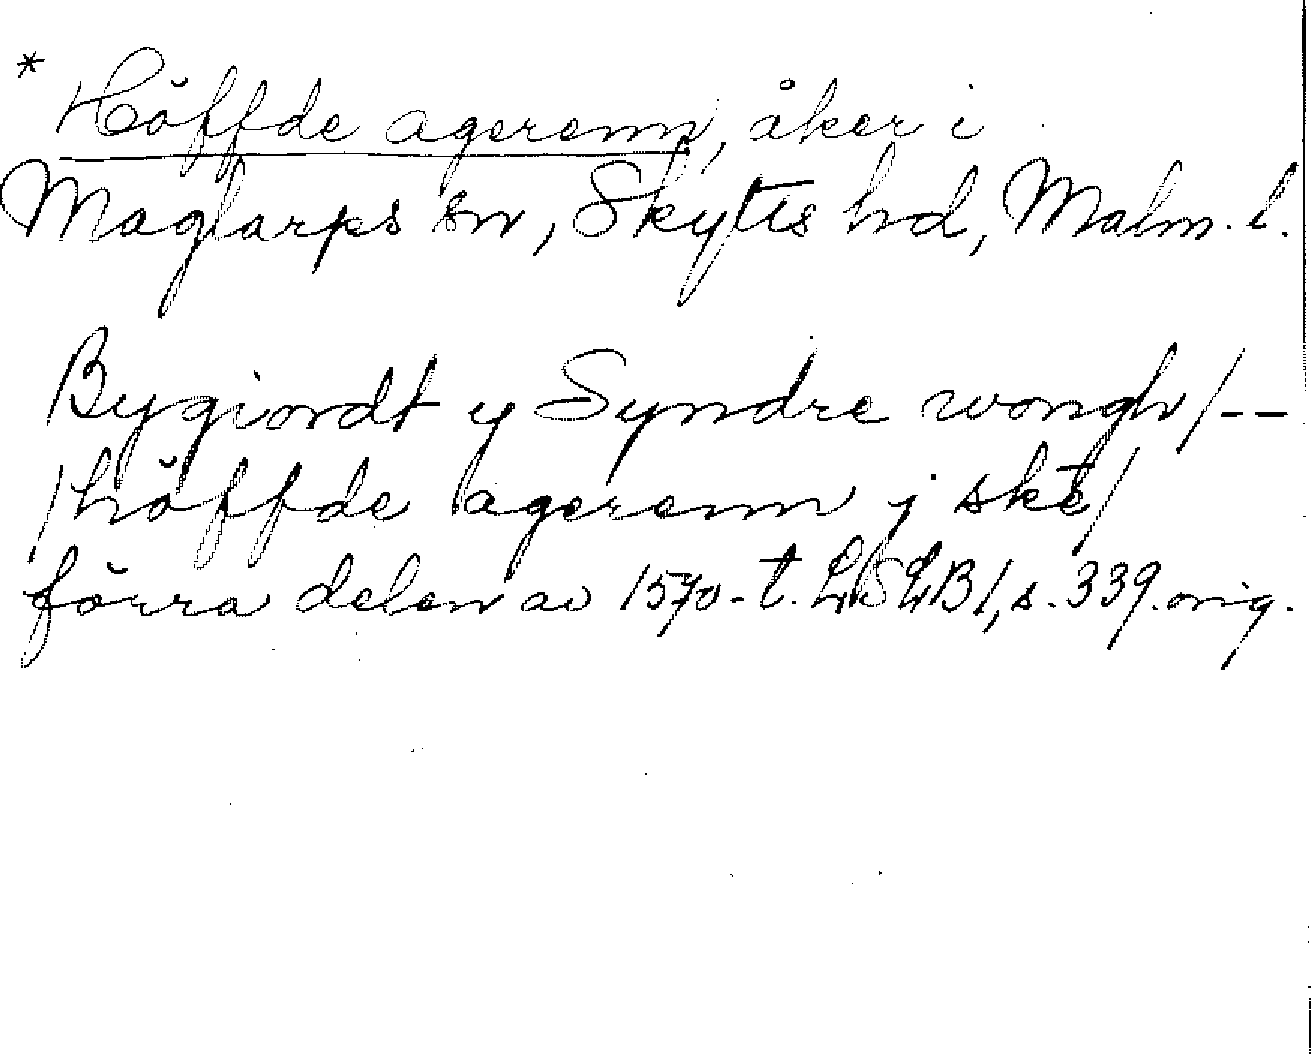 * Höffde agerenn, åker i
Maglarps sn, Skytts hd, Malm. l.
Bygiordt y Syndre wongh/--
/höffde agerenn j ske/
förra delen av 1570-t. LSLB1, s. 339. orig.